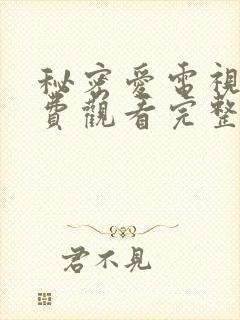 秘密愛電視
費觀看完整
君不見